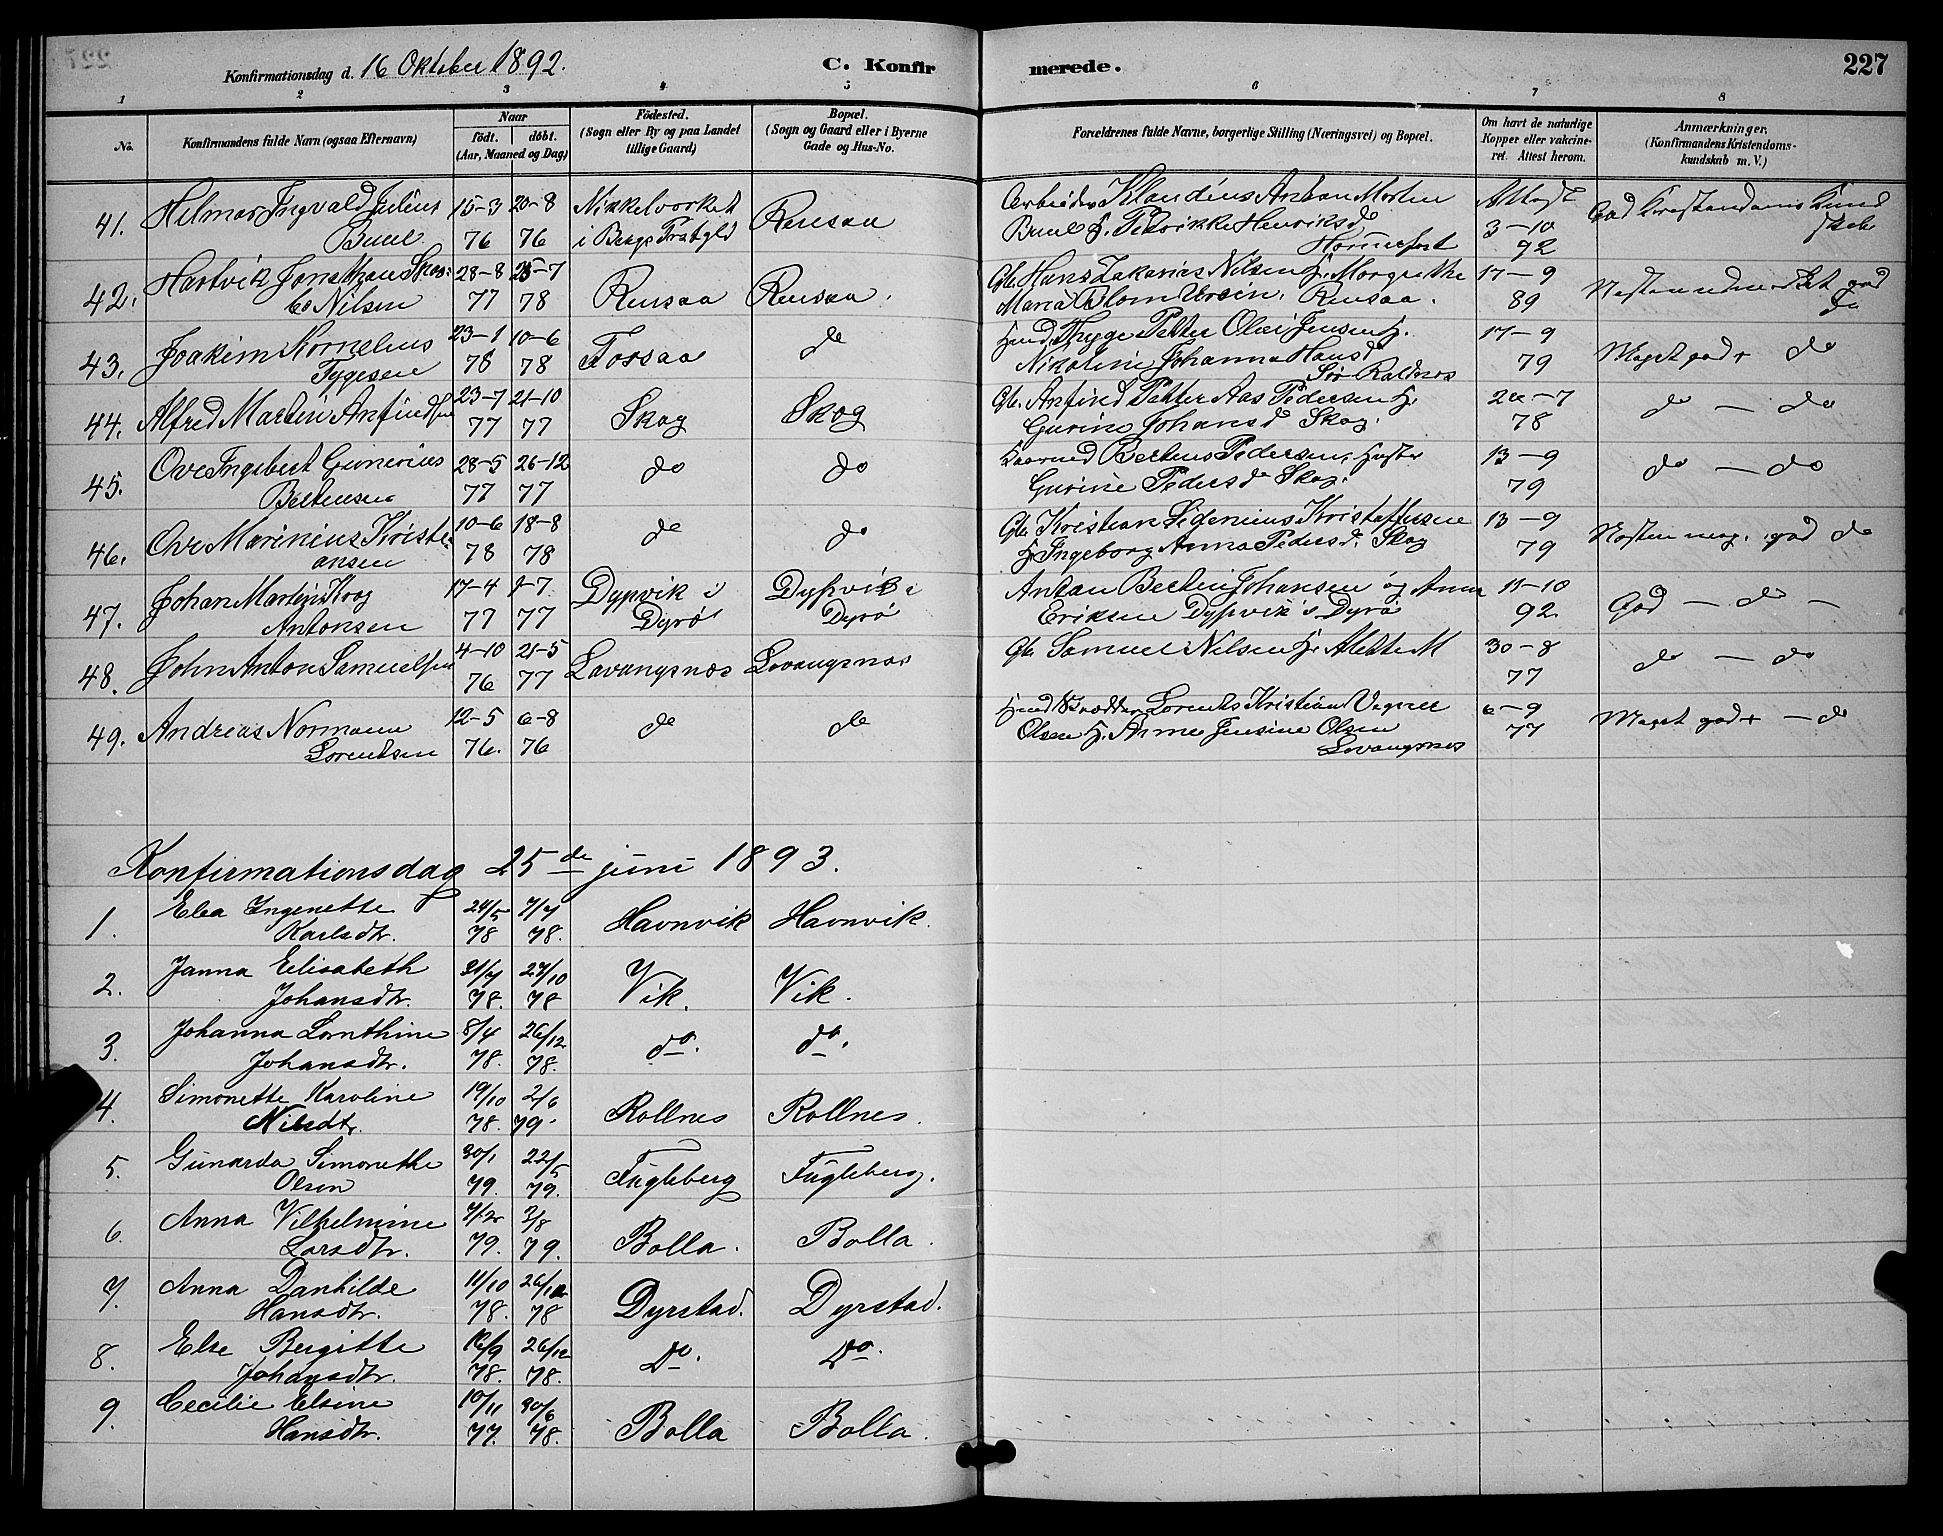 Konfirmationsdag d. 16 Oktober 1892. C. Konfirmerede. 227
1 2 3 4 5 6 7 8
No. Konfirmandens fulde Navn (ogsaa Efternavn) Naar födt. döbt. (Aar, Maaned og Dag) Födested. (Sogn eller By og paa Landet tillige Gaard) Bopæl. (Sogn og Gaard eller i Byerne Gade og Hus-No. Forældrenes fulde Navne, borgerlige Stilling (Næringsvei) og Bopæl. Om havt de naturlige Kopper eller vakcineret. Attest herom. Anmærkninger. (Konfirmandens Kristendomskundskab m. V.)
41. Helmar Ingvald Julius 15-3 20-8 Nikkelverket Rensaa Arbeider Klaudius Anton Morten Attest God Kristendoms Kund
Buul 76 76 i Bergs Prstgld Buul H. Fredrikke Henriksd 3-10 skab
92
42. Hartvik Jonathan 28-8 25-7 Rensaa Rensaa. Gb. Hans Zakarias Nilsen H. Margrethe 17-9 Næsten god
Nilsen 77 78 Maria Blom Rensaa. 89 do
43. Joakim Kornelius 23-1 10-6 Fossaa do Thyge Petter Olai Jensen H. 17-9 Meget god do
Tygesen 78 78 Nikoline Johanna Hansd 79
44. Alfred Martin 23-7 21-10 Skog Skog Gb. Anfind Petter Aas Pedersen H. -7 do - do
77 77 Gurine Johansd Skog. 78
45. Ove Ingebert Gunerius 28-5 26-12 do do Bertens Pedersen, 13-9 do - do
Bertensen 77 77 Gurine Pedersd Skog. 79
46. Ove Marinius Kristi 10-6 18-8 do do Gb. Kristian Sidenius Kristoffersen 13-9 Næsten meg. god do
ansen 78 78 H. Ingeborg Anna Pedersd. Skog 79
47. Johan Martin 17-4 -7 Dypvik i Dypvik i Anton Bertin Johansen og Anna 11-10 God - do -
Antonsen 77 77 Dyrö Dyrö Eriksen Dypvik i Dyrö 92
48. John Anton Samuelsen 4-10 21-5 Lavangsnes Lovangsnes Gb. Samuel Nilsen H. Alette M 30-8 do - do
76 77 77
49. Andreas Normann 12-5 6-8 do do Lorents Kristian 6-9 Meget god - do
Lorentsen 76. 76 Olsen H. Anne Jensine Olsen 77
Lovangsnes
Konfirmationsdag 25de juni 1893.
1. Elea Ingenette 24/5 7/7 Havnvik Havnvik.
Karlsdtr. 78 78.
2. Janna Elisabeth 21/7 27/10 Vik. Vik.
Johansdtr. 78. 78
3. Johanna Lornthine 8/4 26/12 do. do.
Johansdtr. 78. 78.
4. Simonette Karoline 19/10 2/6 Rollnes Rollnes.
Nilsdtr. 78. 79.
5. Gunarda Simonethe 30/1 22/5 Fugleberg Fugleberg.
Olsen 79. 79.
6. Anna Vilhelmine 7/2 3/8 Bolla. Bolla.
Larsdtr. 79. 79.
7. Anna Danhilde 11/10 26/12 Dyrstad. Dyrstad.
Hansdtr. 78. 78
8. Else Bergitte 12/9 26/12 Do. Do.
Johansdtr. 78. 78.
9. Cecilie Elsine 10/11 30/6 Bolla Bolla.
Hansdtr. 77. 78.